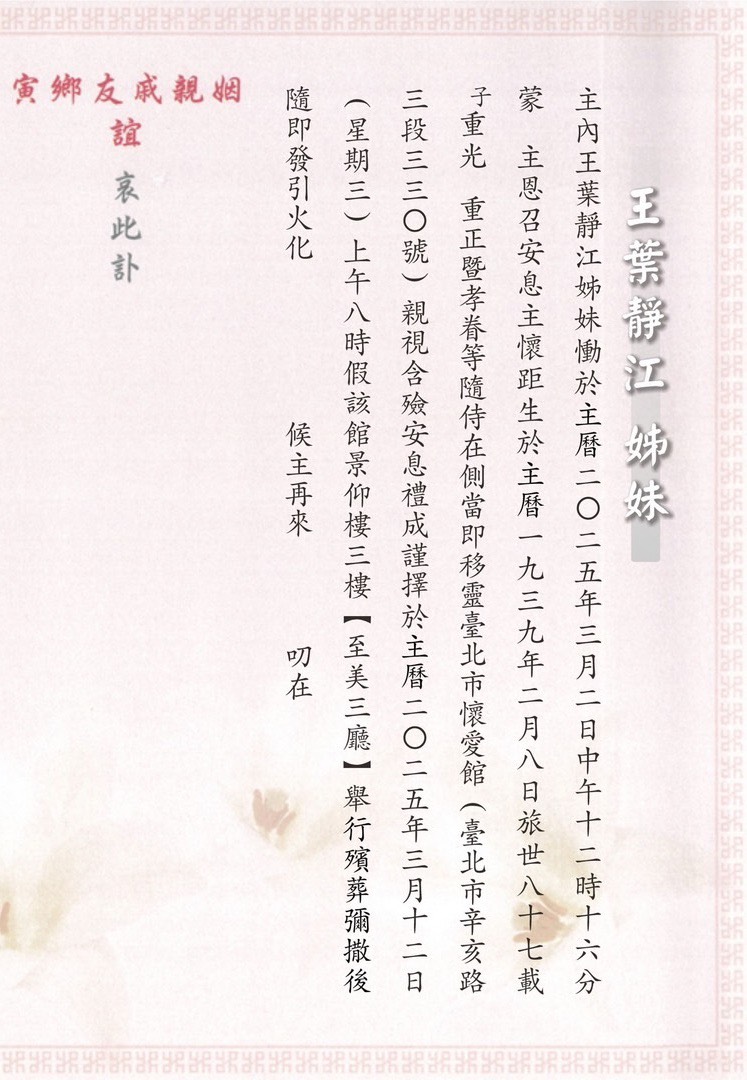 王葉靜江 姊妹
主內王葉靜江姊妹慟於主曆二〇二五年三月二日中午十二時十六分
蒙　主恩召安息主懷距生於主曆一九三九年二月八日旅世八十七載
子重光　重正暨孝眷等隨侍在側當即移靈臺北市懷愛館（臺北市辛亥路
三段三三〇號）親視含殮安息禮成謹擇於主曆二〇二五年三月十二日
（星期三）上午八時假該館景仰樓三樓【至美三廳】舉行殯葬彌撒後
隨即發引火化　候主再來　叨在
姻親戚友鄉寅
誼
哀此訃